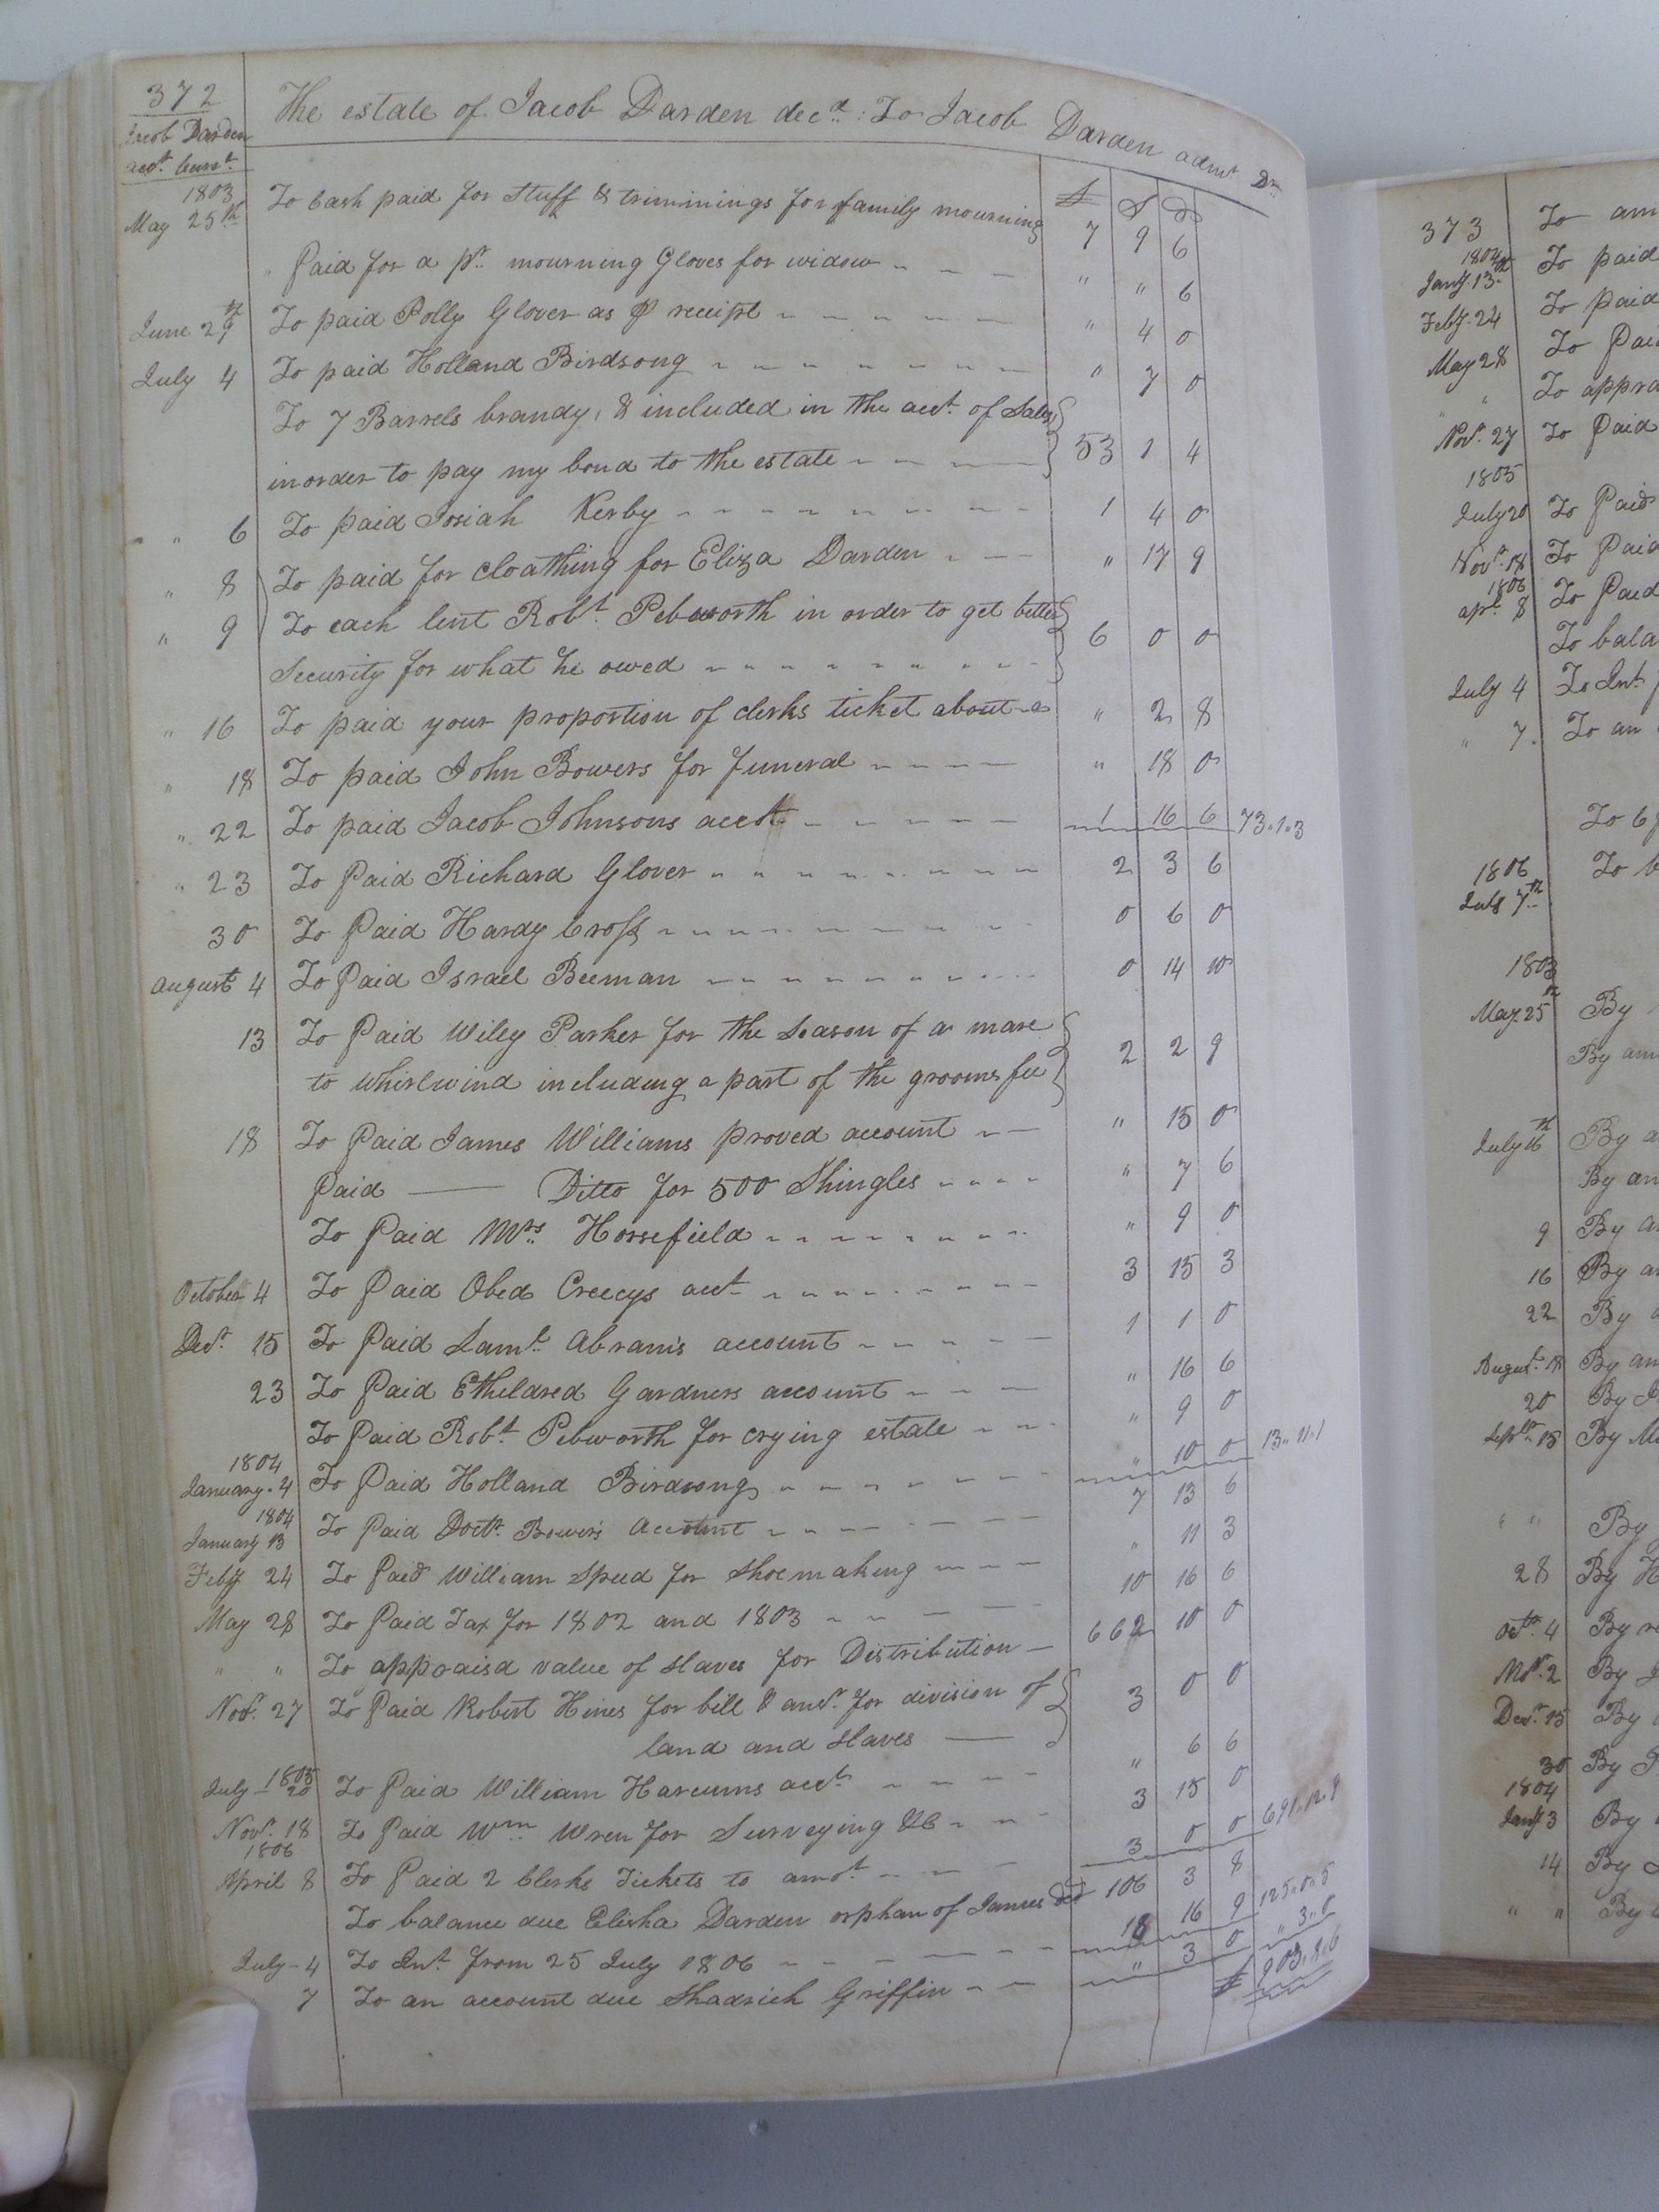 372
Jacob Darden
acct. Curnt.
The estate of Jacob Darden decd. : To Jacob Darden admr Dr.
£ S D
1803
May 25th To Cash paid for stuff & trimmings for family mourning 7 9 6
" Paid for a pr. mourning Gloves for widow " " 6
June 29th To paid Polly Glover as P receipt " 4 0
July 4 To paid Holland Birdsong " 7 0
To 7 Barrels brandy, & included in the acct. of Sales
inorder to pay my bond to the estate 53 1 4
" 6 To paid Josiah Kerby 1 4 0
" 8 To paid for cloathing for Eliza Darden " 17 9
" 9 To cash lent Robt. Pebworth in order to get better
Security for what he owed 6 0 0
" 16 To paid your proportion of clerks ticket about a " 2 8
" 18 To paid John Bowers for funeral " 18 0
" 22 To paid Jacob Johnsons acct 1 16 6 73.1.3
" 23 To Paid Richard Glover 2 3 6
30 To Paid Hardy Cross 0 6 0
August 4 To Paid Israel Beeman 0 14 10
13 To Paid Wiley Parker for the Season of a mare
to whirlwind including a part of the grooms fee 2 2 9
18 To Paid James Williams proved account " 15 0
Paid Ditto for 500 Shingles " 7 6
To Paid Mrs. Horsefield " 9 0
October 4 To Paid Obed Creecys acct 3 15 3
Decr. 15 To Paid Saml. Abram's account 1 1 0
23 To Paid Etheldred Gardners account " 16 6
To Paid Robt. Pebworth for crying estate " 9 0
1804
January. 4 To Paid Holland Birdsong " 10 0 13.11.1
1804
January 13 To Paid Doctr. Bowers Account 7 13 6
Feby 24 To Paid William Speed for Shoemaking " 11 3
May 28 To Paid Tax for 1802 and 1803 10 16 6
" " To appraisd value of slaves for Distribution 662 10 0
Novr. 27 To Paid Robert Hines for bill & answr. for division of
land and slaves 3 0 0
1805
July - 20 To Paid William Harcums acct " 6 6
Novr. 18 To Paid Wm. Wren for Surveying &C 3 15 0
1806
April 8 To Paid 2 Clerks Tickets to amot. 3 0 0 691.12.9
To balance due Elisha Darden orphan of James decd 106 3 8
July - 4 To Int. from 25 July 1806 18 16 9 125.0.5
7 To an account due Shadrich Griffin " 3 0 " 3.0
£ 903.8.6
373 To am
1804
Jany. 13th To paid
Feby. 24 To paid
May 28 To Paid
" To appra
Novr. 27 To Paid
1805
July 20 To Paid
Novr. 18 To Paid
1806
apl. 8 To Paid
To bala
July 4 To Int.
" 7. To an
To
1806
July 7th To
1803
May 25th By
By am
July 16th By a
By am
9 By a
16 By a
22 By a
August. 18 By am
20 By
Septr. 15 By
" " By
28 By H
Octr. 4 By
Novr. 2 By
Decr. 15 By
30 By
1804
Jany 3 By
14 By
" " By